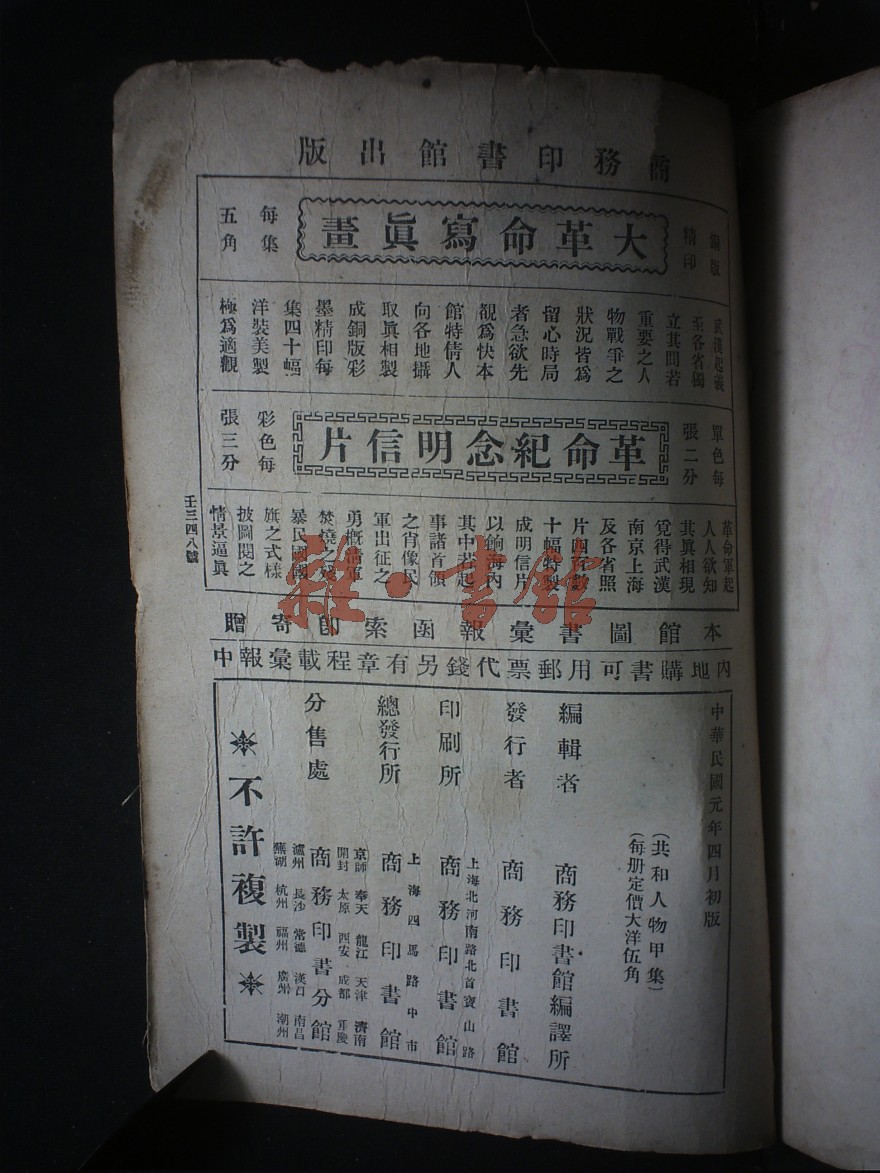 商務印書館出版
銅版
精印
大革命寫眞畫
每集
五角
武漢起義
至各省獨
立其間若
重要之人
物戰爭之
狀況皆爲
留心時局
者急欲先
覩爲快本
館特倩人
向各地攝
取眞相製
成銅版彩
墨精印每
集四十幅
洋裝美製
極爲適觀
單色每
張二分
革命紀念明信片
彩色每
張三分
革命軍起
人人欲知
其眞相現
覓得武漢
南京上海
及各省照
片四百數
十幅特製
成明信片
以餉海內
其中若起
事諸首領
之肖像民
軍出征之
勇概清軍
焚燒之殘
暴民國國
旗之式樣
披圖閱之
情景逼眞
壬三四八號
本館圖書彙報函索卽寄贈
內地購書可用郵票代錢另有章程載彙報中
中華民國元年四月初版
(共和人物甲集)
(每册定價大洋伍角)
編輯者 商務印書館編譯所
發行者 商務印書館
印刷所 上海北河南路北首寶山路 商務印書館
總發行所 上海四馬路中市 商務印書館
分售處 商務印書分館
京師 奉天 龍江 天津 濟南
開封 太原 西安 成都 重慶
瀘州 長沙 常德 漢口 南昌
蕪湖 杭州 福州 廣州 潮州
不許複製
雜·書館